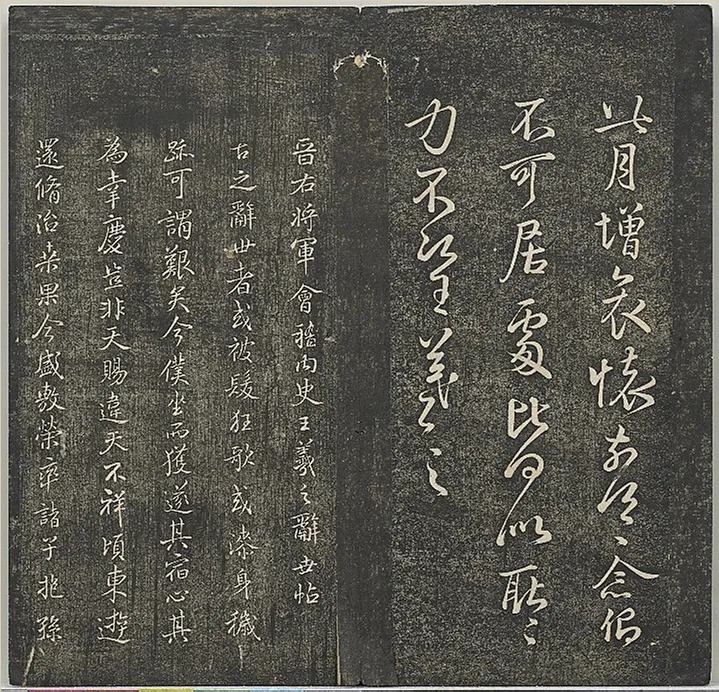 此月增哀懷前念
不可居處比何似耿〻
力不次王羲之
晉右將軍會稽内史王羲之辭世帖
古之辭世者或被髮狂歌或漆身穢
跡可謂艱矣今僕坐而獲遂其宿心其
為幸慶豈非天賜違天不祥頃東遊
還脩治桑果今盛敷榮率諸子抱孫